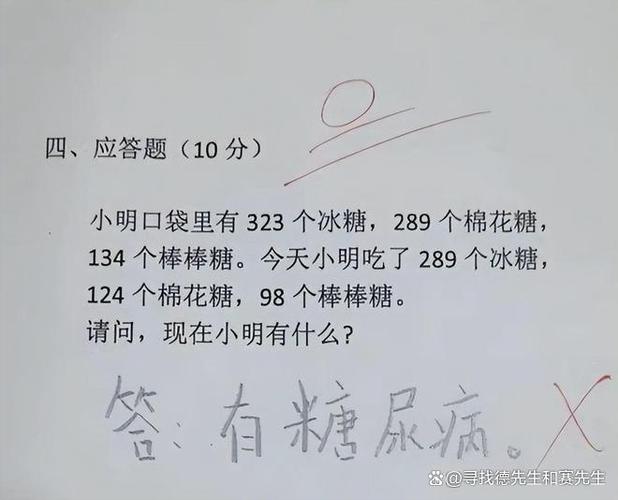 四、应答题（10 分）
小明口袋里有 323 个冰糖，289 个棉花糖，
134 个棒棒糖。今天小明吃了 289 个冰糖，
124 个棉花糖，98 个棒棒糖。
请问，现在小明有什么？
答：有糖尿病。
@寻找德先生和赛先生